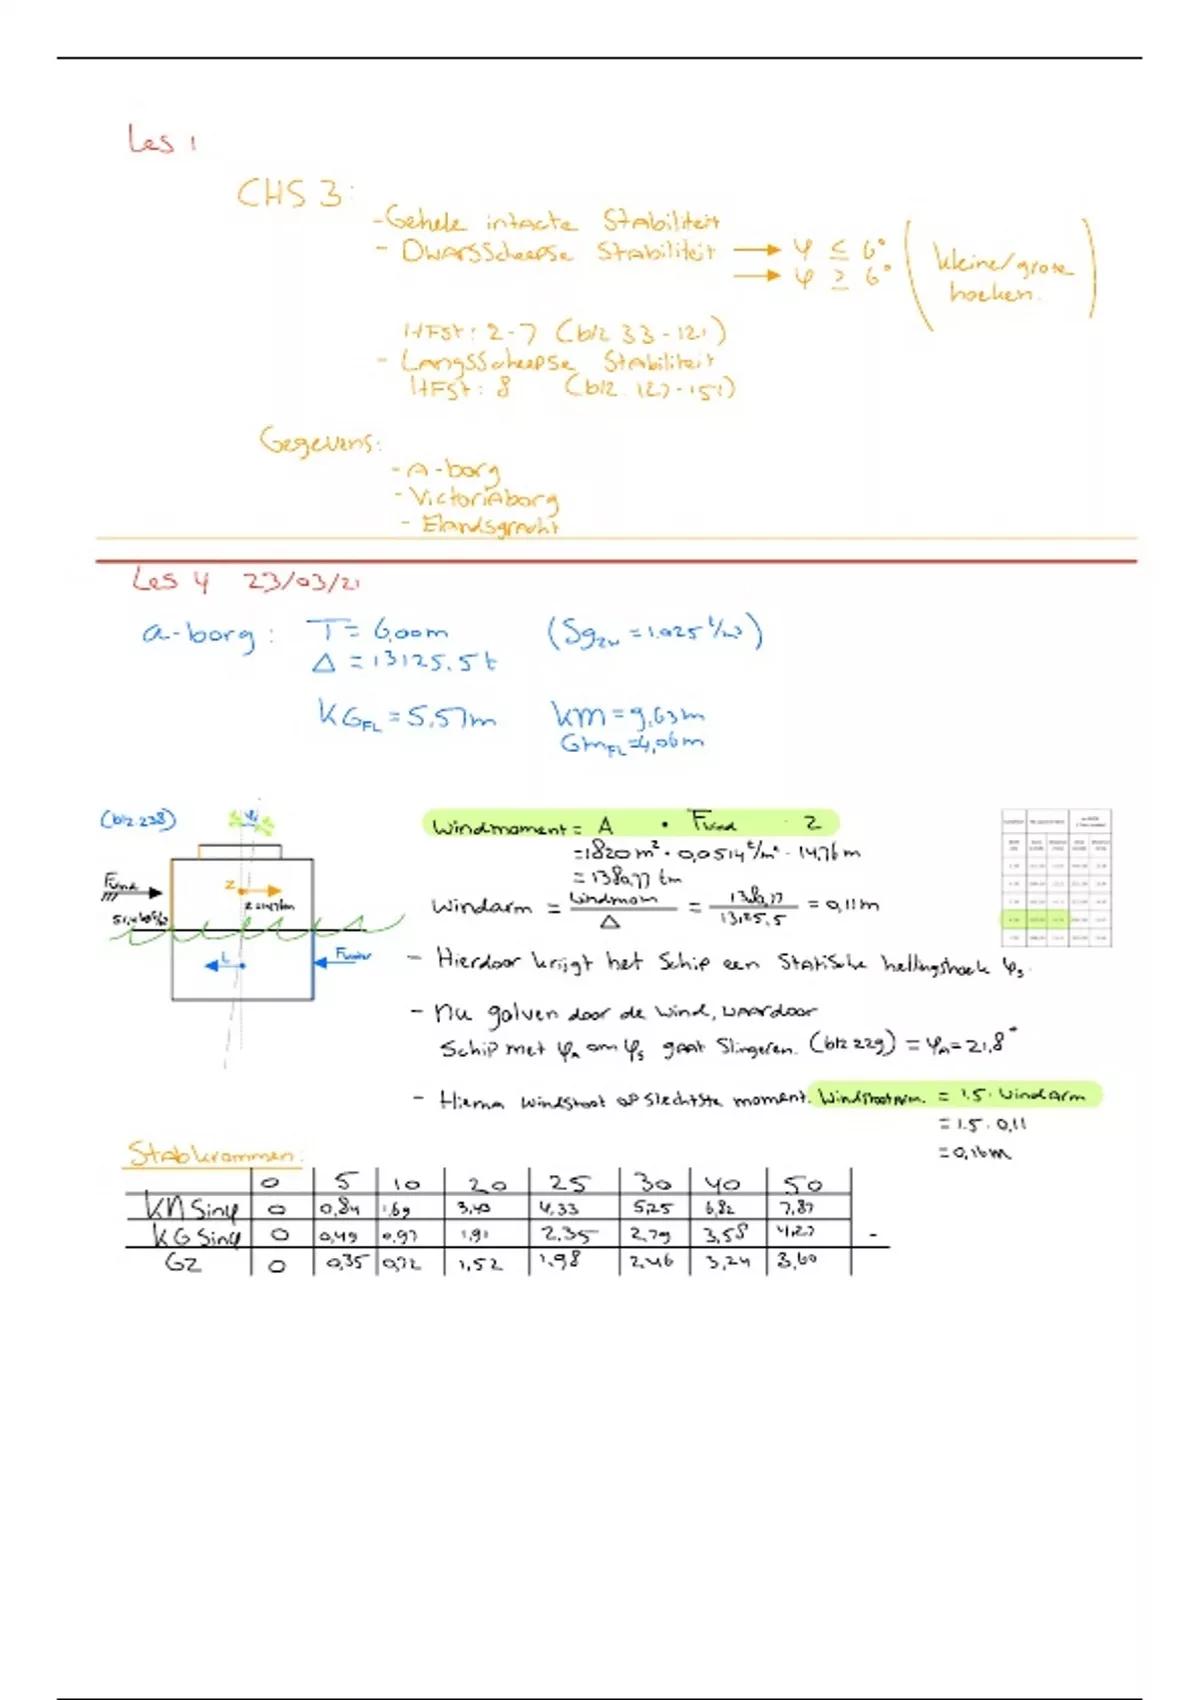 Les 1
CHS 3:
- Gehele intacte Stabiliteit
- DwarsScheepse Stabiliteit → φ ≤ 6°
→ φ ≥ 6°
(kleine/grote
hoeken.)
HFst: 2-7 (blz 33-121)
- LangsScheepse Stabiliteit
HFst: 8 (blz. 127-151)
Gegevens:
- A-borg
- Victoriaborg
- Elandsgracht
Les 4 23/03/21
a-borg: T = 6,00m (Sgzw = 1.025 t/m³)
Δ = 13125,5t
KGFL = 5,57m KM = 9,63m
GMFL = 4,06m
(blz. 238)
Fwind
Z
L
Fwater
Windmoment = A • Fwind · Z
= 1820 m² · 0,0514 t/m² · 14,76 m
= 1380,77 tm
Windarm = Windmom / Δ = 1380,77 / 13125,5 = 0,11m
- Hierdoor krijgt het Schip een Statische hellingshoek φs.
- Nu golven door de wind, waardoor
Schip met φA om φs gaat Slingeren. (blz 229) = φA = 21,8°
- Hierna windstoot op slechtste moment. Windstootarm. = 1.5 · Windarm
= 1.5 · 0,11
= 0,16m
Stabkrommen:
0 5 10 20 25 30 40 50
KN Sinφ 0 0,84 1,69 3,40 4,33 5,25 6,82 7,87
KG Sinφ 0 0,49 0,97 1,91 2,35 2,79 3,58 4,27 -
GZ 0 0,35 0,72 1,52 1,98 2,46 3,24 3,60